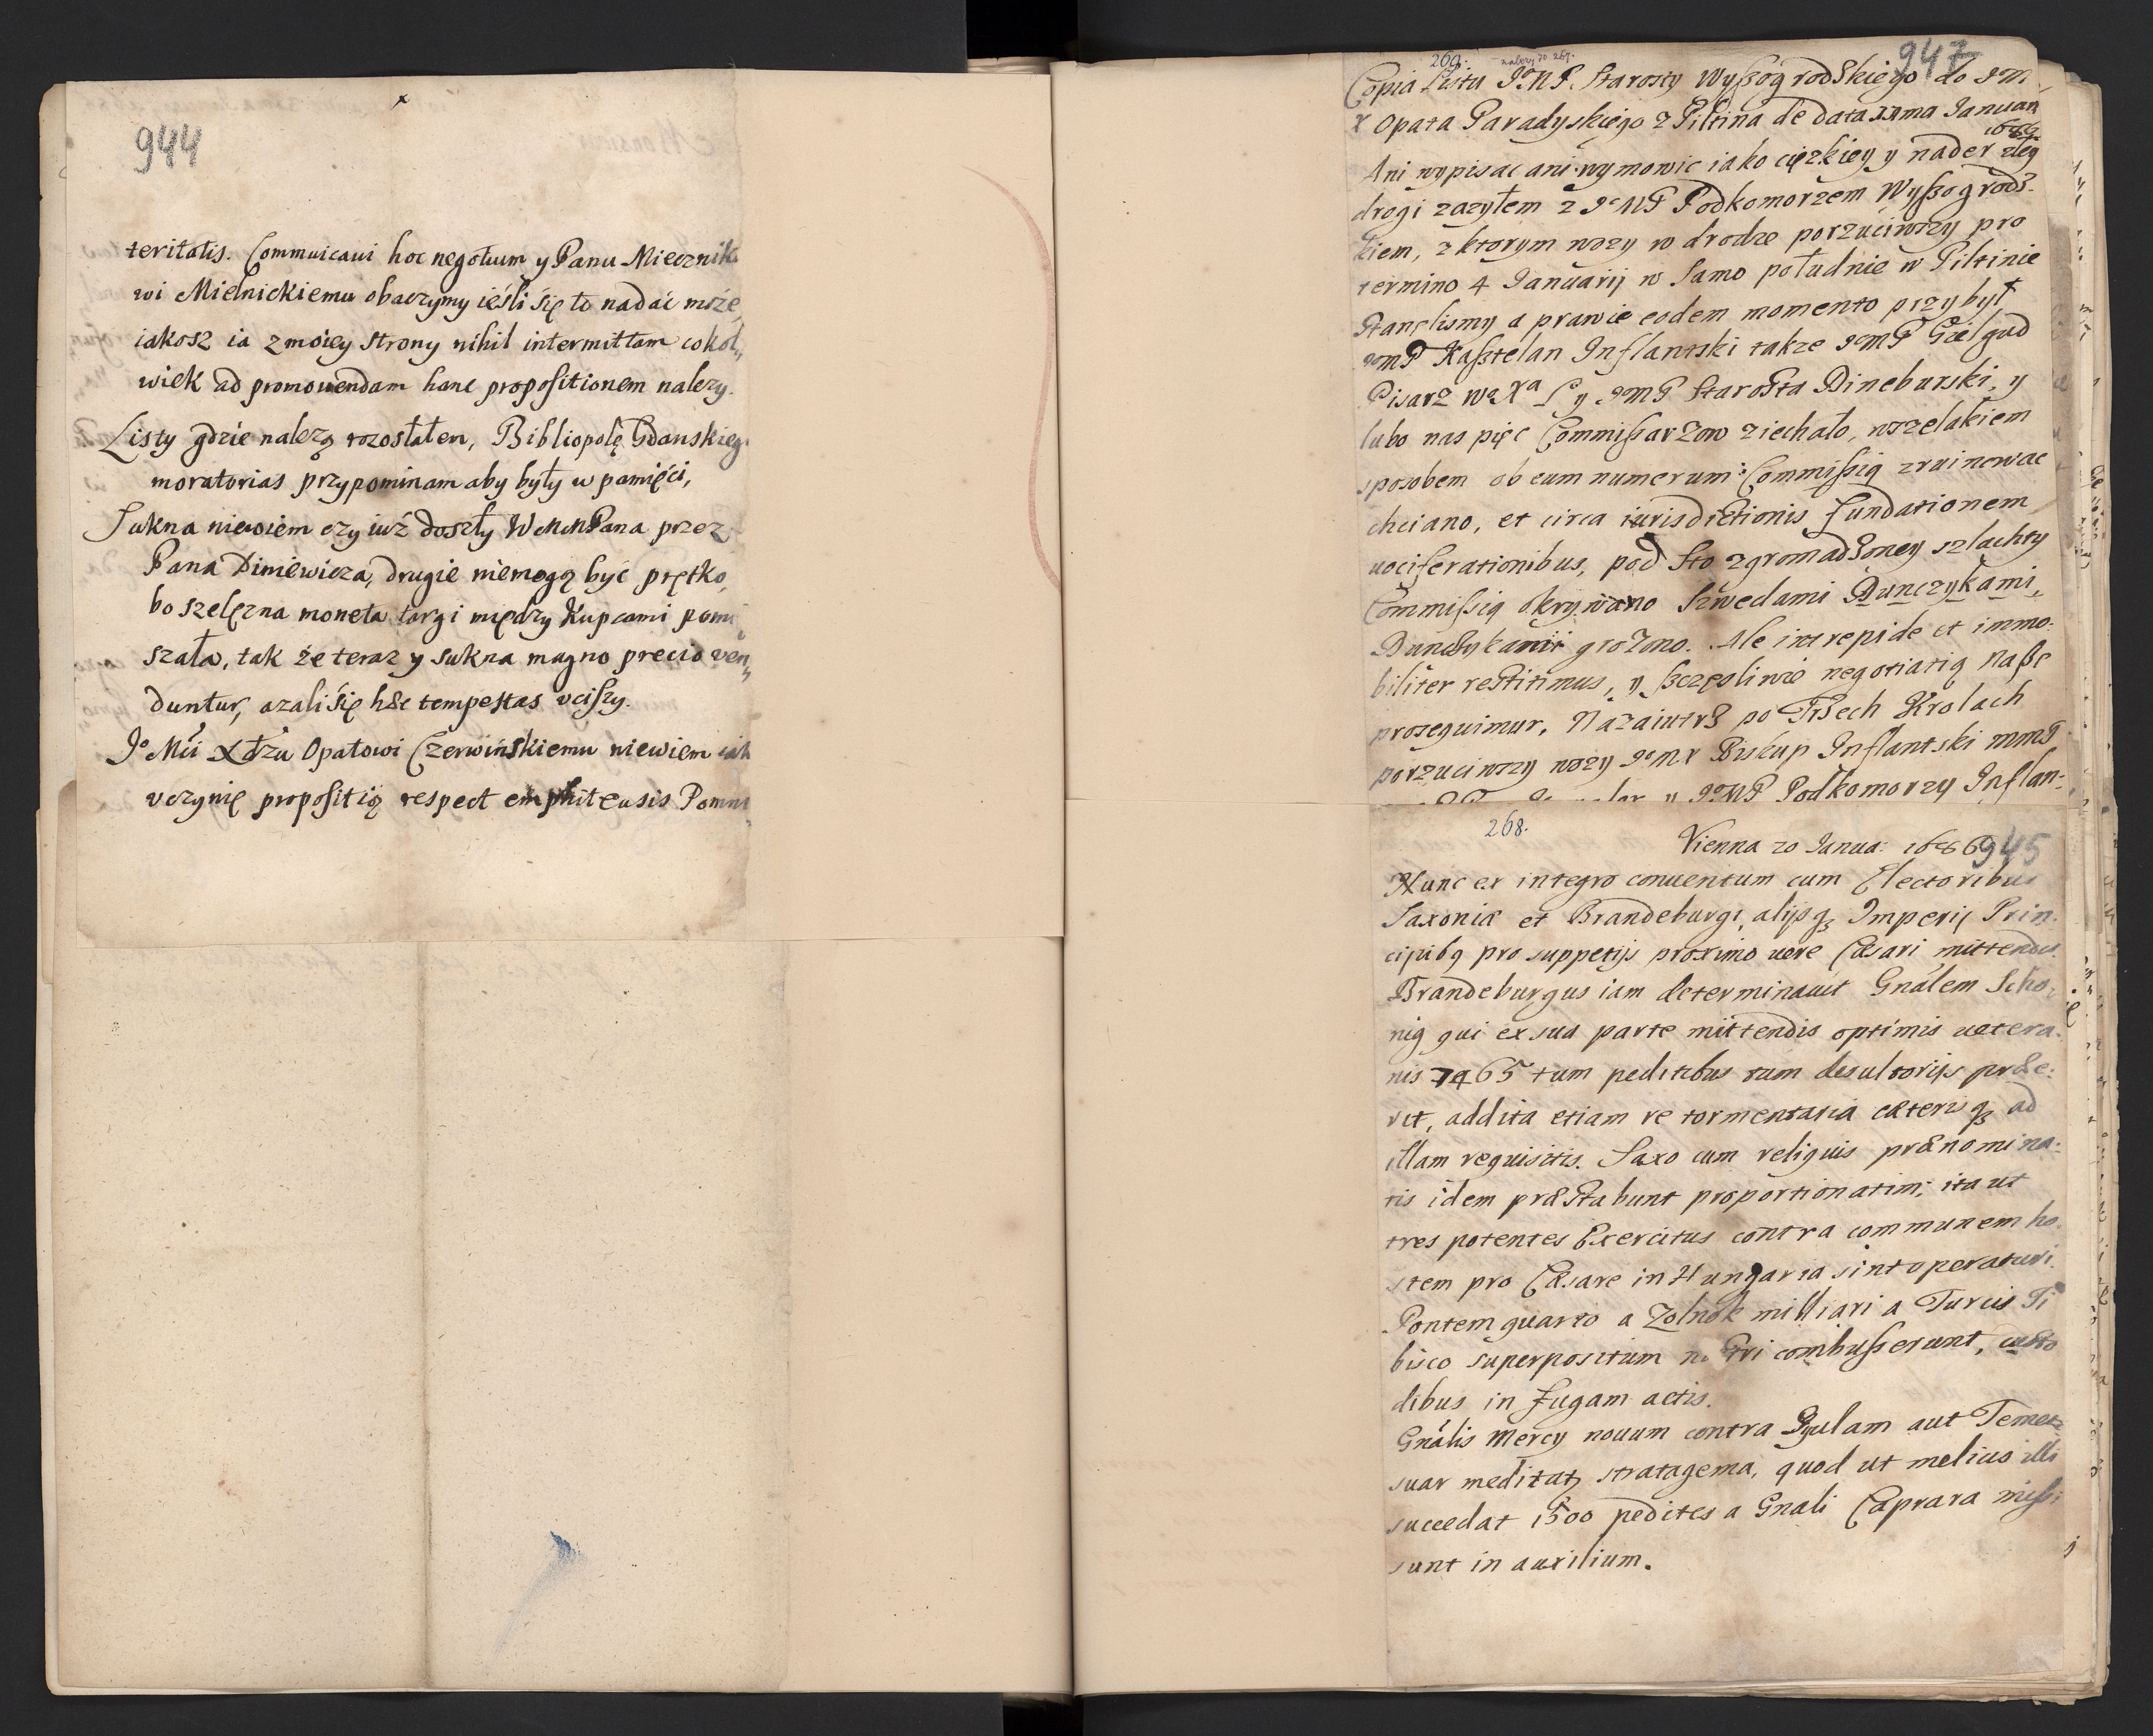 944
teritatis. Commuicaui hoc negotium y Panu Miecznik
wi Mielnickiemu obaczymy ieśli się to nadać może,
iakosz ia z moiey strony nihil intermittam cokol„
wiek ad promouendam hanc propositionem nalezy.
Listy gdzie nalezą rozosłałem, Bibliopolę Gdanskieg
moratorias przypominam aby były w pamięci,
Sukna niewiem czy iuż doszły WMMPana przez
Pana Diniewicza, drugie niemogą być prętko,
bo szelęzna moneta targi między Kupcami pomi
szała, tak że teraz y sukna magno precio ven„
duntur, azali się hæc tempestas vciszy.
Je Mći Xdzu Opatowi Czerwińskiemu niewiem iak
vczynię propositią respect emphiteusis Pomni
269. nalezy do 267. 947
Copia Listu JeMP. Starosty Wyszogrodskiego do JeM
X Opata Paradyskiego z Piltina de data Januarii
1686
Ani wypisac ani wymowic iako cięzkiey y nader zley
drogi zazyłem z JeMP Podkomorzem Wyszogrods-
kiem, z ktorym wozy w drodze porzuciwszy pro
termino 4 Januarij w samo południe w Piltinie
stanęlismy a prawie eodem momento przybył
JemP Kasztelan Inflantski takze JemP Gielgud
Pisarz WoXa L y JemP Starosta Dineburski, y
lubo nas pięc Commissarzow ziechało, wszelakiem
sposobem ob eum numerum Commissią zruinowac
chciano, et circa iurisdictionis fundationem
uociferationibus, pod sto zgromadzoney szlachty
Commissią okrywano Szwedami Dunczykami,
Dunczykami grozono. Ale intrepide et immo-
biliter restitimus, y szczęsliwie negotiatią nasze
prosequimur, Nazaiutrz po Trzech Krolach
porzuciwszy wozy JeMX Biskup Inflantski mmP
y JeMP Podkomorzy Inflan-
268.
Vienna 20 Janua: 1686 945
Nunc ex integro conuentum cum Electoribus
Saxoniæ et Brandeburgi, alijsqȝ Imperij Prin
cipibq pro suppetijs proximo uere Cæsari mittendis.
Brandeburgus iam determinauit Gnãlem Scho-
nig qui ex sua parte mittendis optimis uetera-
nis 7465 tum peditibus tum desultorijs præe-
rit, addita etiam re tormentaria cæterisqȝ ad
illam requisitis. Saxo cum reliquis prænomina-
tis idem præstabunt proportionatim; ita ut
tres potentes Exercitus contra communem ho-
stem pro Cæsare in Hungaria sint operaturi.
Pontem quarto a Zolnok milliari a Turcis Ti
bisco superpositum nostri combusserunt, custo
dibus in fugam actis.
Gnãlis Mercy nouum contra Gyulam aut Temes
suar meditatȝ stratagema, quod ut melius illi
succedat 1500 pedites a Gnali Caprara missi
sunt in auxilium.